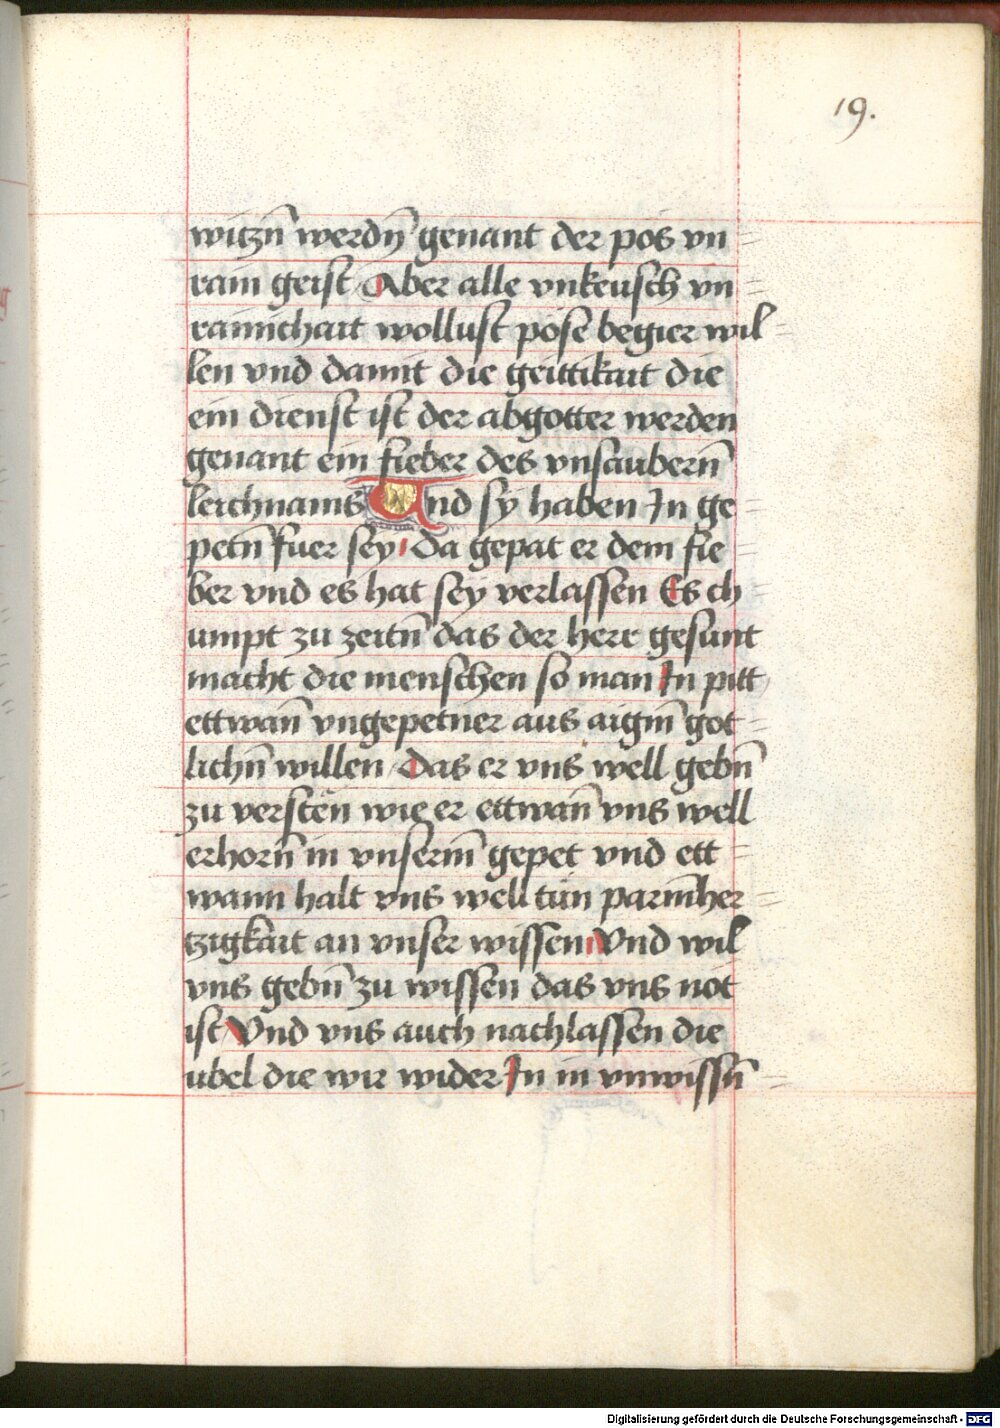 19.
witzn̄ werdn̄ genant der pos vn
rain geist Aber alle vnkeusch vn
rainichait wollust pöse begier wil
len vnd damit die geittikait die
ein dienst ist der abgotter werden
genant ein fieber des vnsauberin̄
leichnams Und sÿ haben In ge
petn̄ fuer sey Da gepat er dem fie
ber vnd es hat seÿ verlassen Es ch
umpt zu zeitn̄ das der herr gesunt
macht die menschen so man In pitt
ettwan̄ vngepetner aus aigm̄ got
lichn̄ willen Das er vns well gebn̄
zu versten wie er ettwan̄ vns well
erhorn̄ in vnserm̄ gepet vnd ett
wann halt vns well tün parm̄her
tzigkait an vnser wissen Vnd wil
vns gebn̄ zu wissen das vns not
ist Vnd vns auch nachlassen die
ubel die wir wider In in vnwissn̄
Digitalisierung gefördert durch die Deutsche Forschungsgemeinschaft - DFG